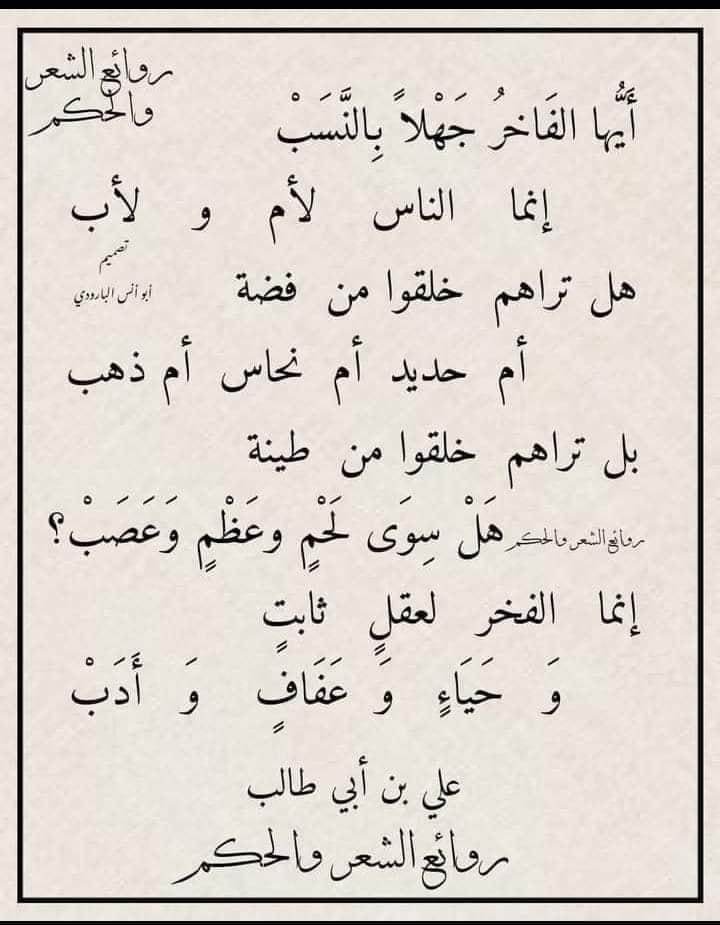 روائع الشعر
والحكم
أَيُّها الفَاخرُ جَهْلاً بِالنَّسَبْ
إنما الناس لأم و لأب
تصميم
أبو أنس البارودي
هل تراهم خلقوا من فضة
أم حديد أم نحاس أم ذهب
بل تراهم خلقوا من طينة
روائع الشعر والحكم
هَلْ سِوَى لَحْمٍ وعَظْمٍ وَعَصَبْ؟
إنما الفخر لعقلٍ ثابتٍ
وَ حَيَاءٍ وَ عَفَافٍ وَ أَدَبْ
علي بن أبي طالب
روائع الشعر والحكم